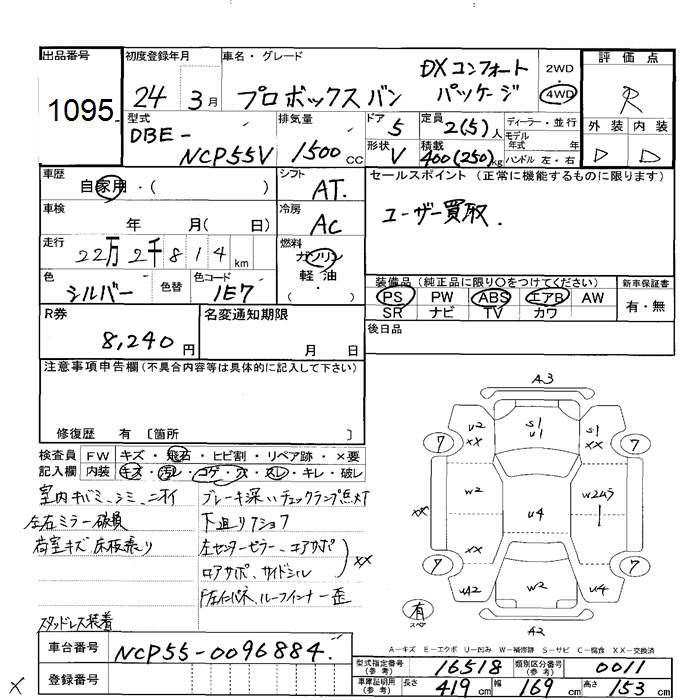 出品番号
1095
初度登録年月
24年3月
車名・グレード
プロボックスバン
DXコンフォート
パッケージ
2WD
・
4WD
評価点
R
外装 内装
D D
型式
DBE-
NCP55V
排気量
1500cc
ドア 5
形状 V
定員 2(5)人
積載 400(250)kg
ディーラー・並行
モデル年式 年
ハンドル 左・右
車歴
自家用・( )
シフト AT.
車検
年 月( 日)
冷房 AC
走行
22万2千814km
燃料
ガソリン
軽油
( ・ )
色 シルバー 色替
色コード 1E7
セールスポイント(正常に機能するものに限ります)
ユーザー買取.
装備品(純正品に限り○をつけてください)
PS PW ABS エアB AW
SR ナビ TV カワ
新車保証書
有・無
後日品
R券
8,240円
名変通知期限
月 日
注意事項申告欄(不具合内容等は具体的に記入して下さい)
修復歴 有 〔箇所 〕
検査員 FW キズ・飛石・ヒビ割・リペア跡・×要
記入欄 内装 キズ・汚レ・コゲ・穴・スレ・キレ・破レ
室内キバミ、シミ、ニオイ
左右ミラー破損
荷室キズ 床板張り
スタッドレス装着
ブレーキ深い チェックランプ点灯
下廻りフショク
左センターピラー、エアサポ
ロアサポ、サイドシル
××
ルーフインナー歪
車台番号 NCP55-0096884.
登録番号
×
A3
U2
××
S1
U1
S1
××
7
7
W2
U4
W2A5
××
××
7
7
UA2
W2
U4
有
スペア
A2
A-キズ E-エクボ U-凹み W-補修跡 S-サビ C-腐食 ××-交換済
型式指定番号
(参考)
16518
類別区分番号
(参考)
0011
車庫証明用
(参考)
長さ 419cm 幅 169cm 高さ 153cm